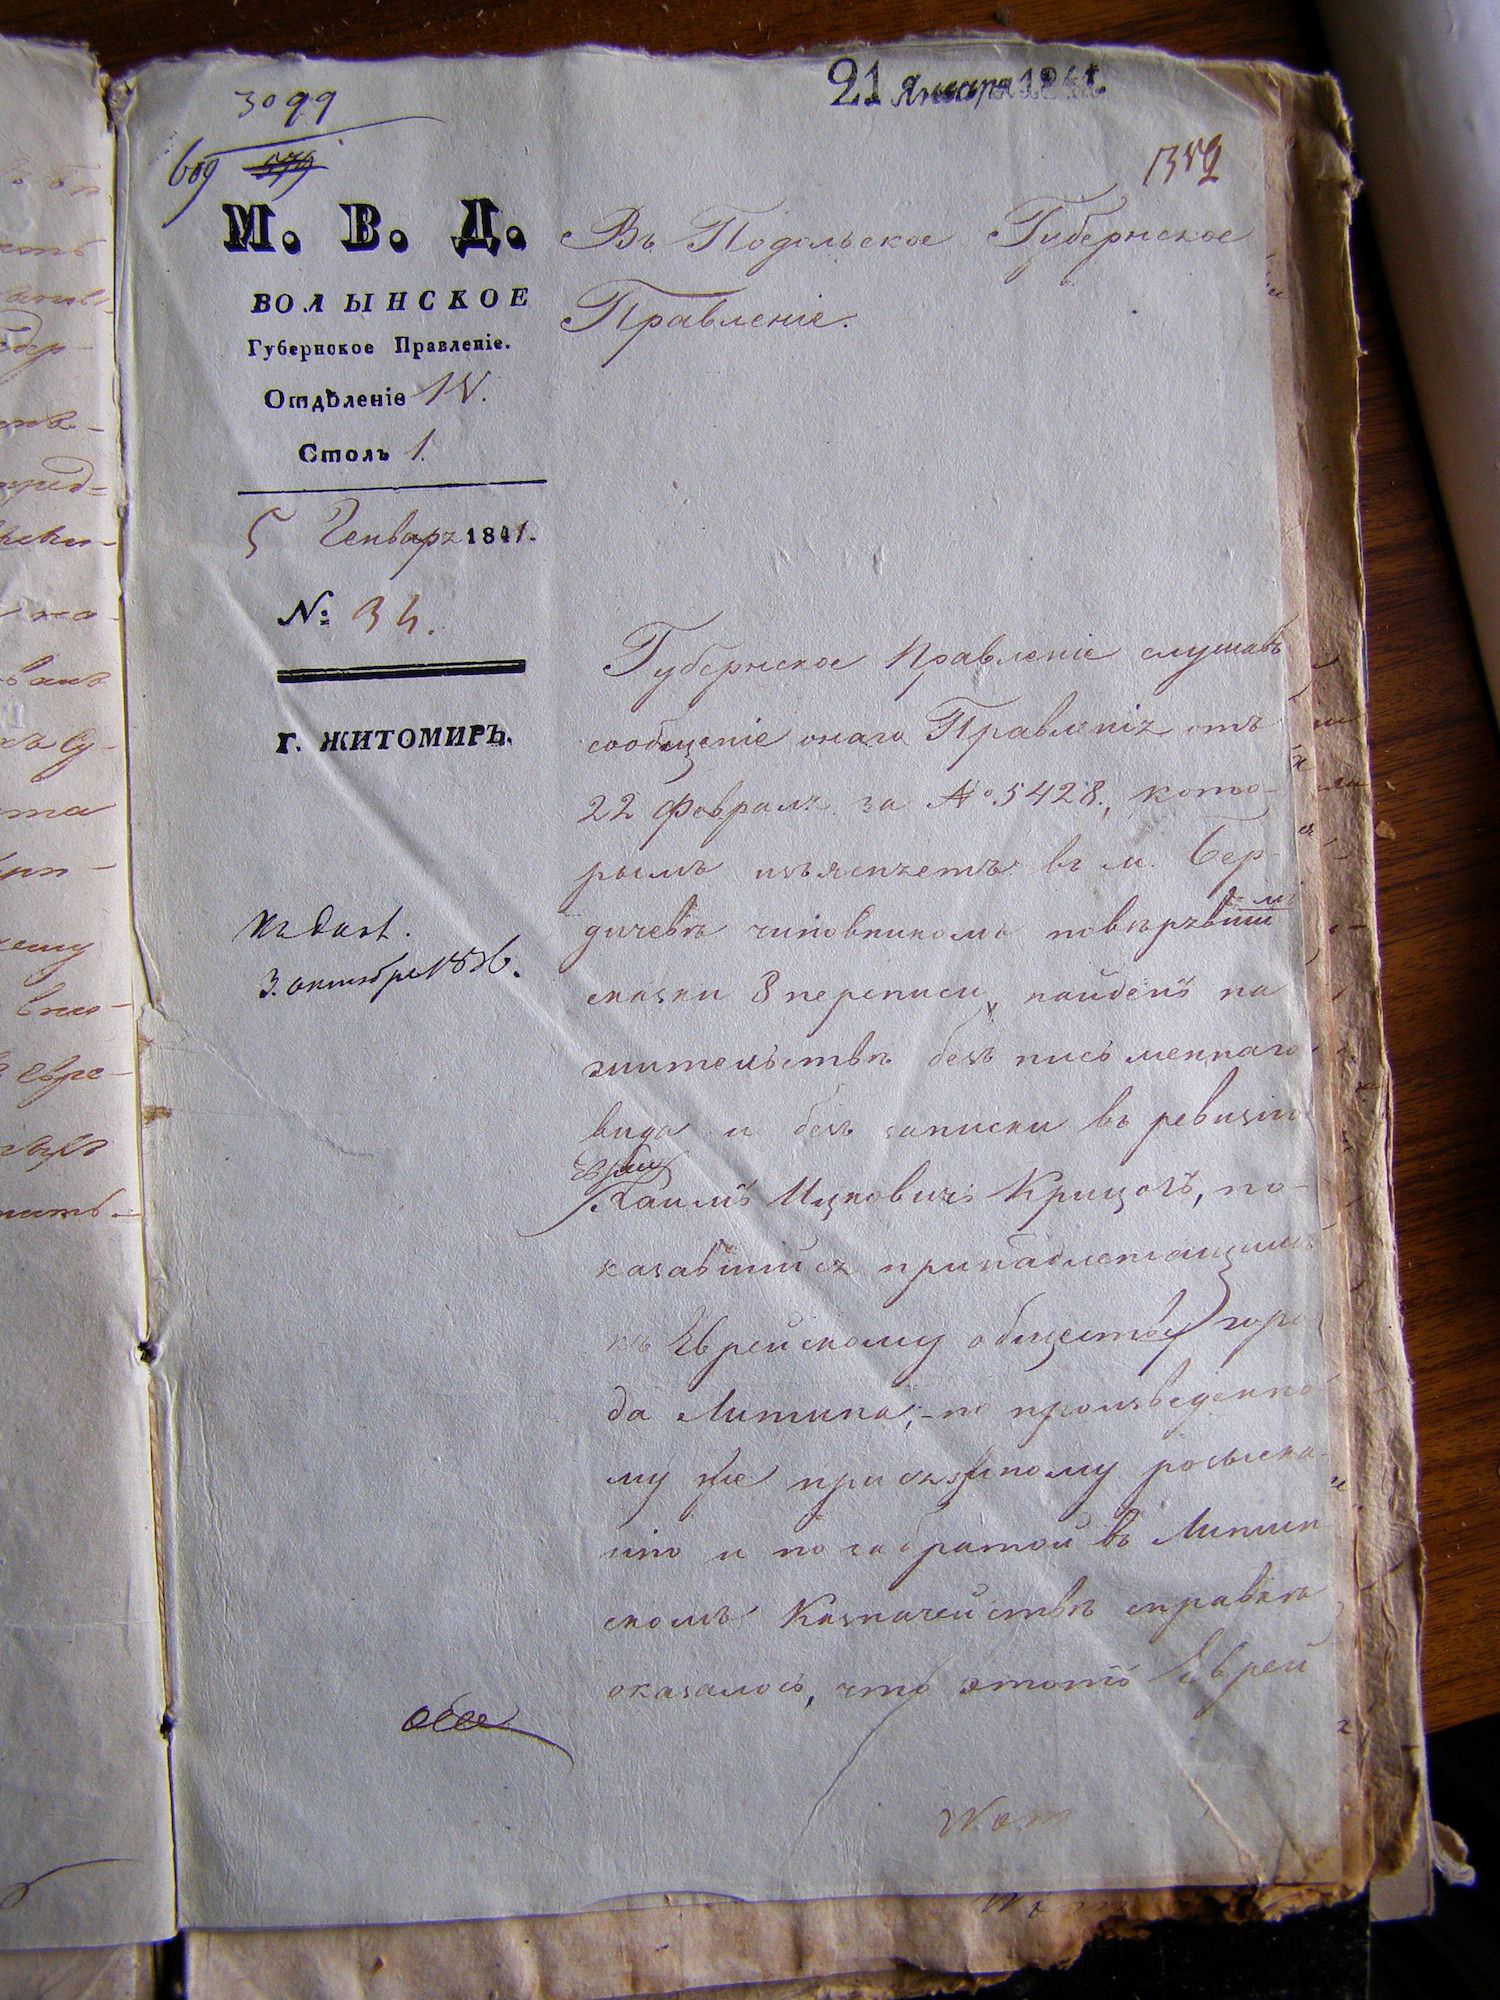 21 Января 1841.
3099
669
1352
М. В. Д.
ВОЛЫНСКОЕ
Губернское Правленіе.
Отдѣленіе IV.
Столъ 1.
5 Генваря 1841.
№ 34.
Г. ЖИТОМИРЪ.
3. октября 1836.
Въ Подольское Губернское
Правленіе.
Губернское Правленіе слушавъ
сообщеніе онаго Правленія отъ
22 Февраля за № 5428., кото-
рымъ изъясняетъ въ м. Бер-
дичевѣ чиновникомъ повѣрявшимъ
сказки 8 переписи, найденъ на
жительствѣ безъ письменнаго
вида и безъ записки въ ревизію
Еврей
Хаимъ Ицковичъ Крицеръ, по-
казавшійся принадлежащимъ
къ Еврейскому обществу горо
да Литина; по произведенно
му же присяжному розыска-
нію и по забратой въ Литин
скомъ Казначействѣ справкѣ
оказалось, что этотъ Еврей